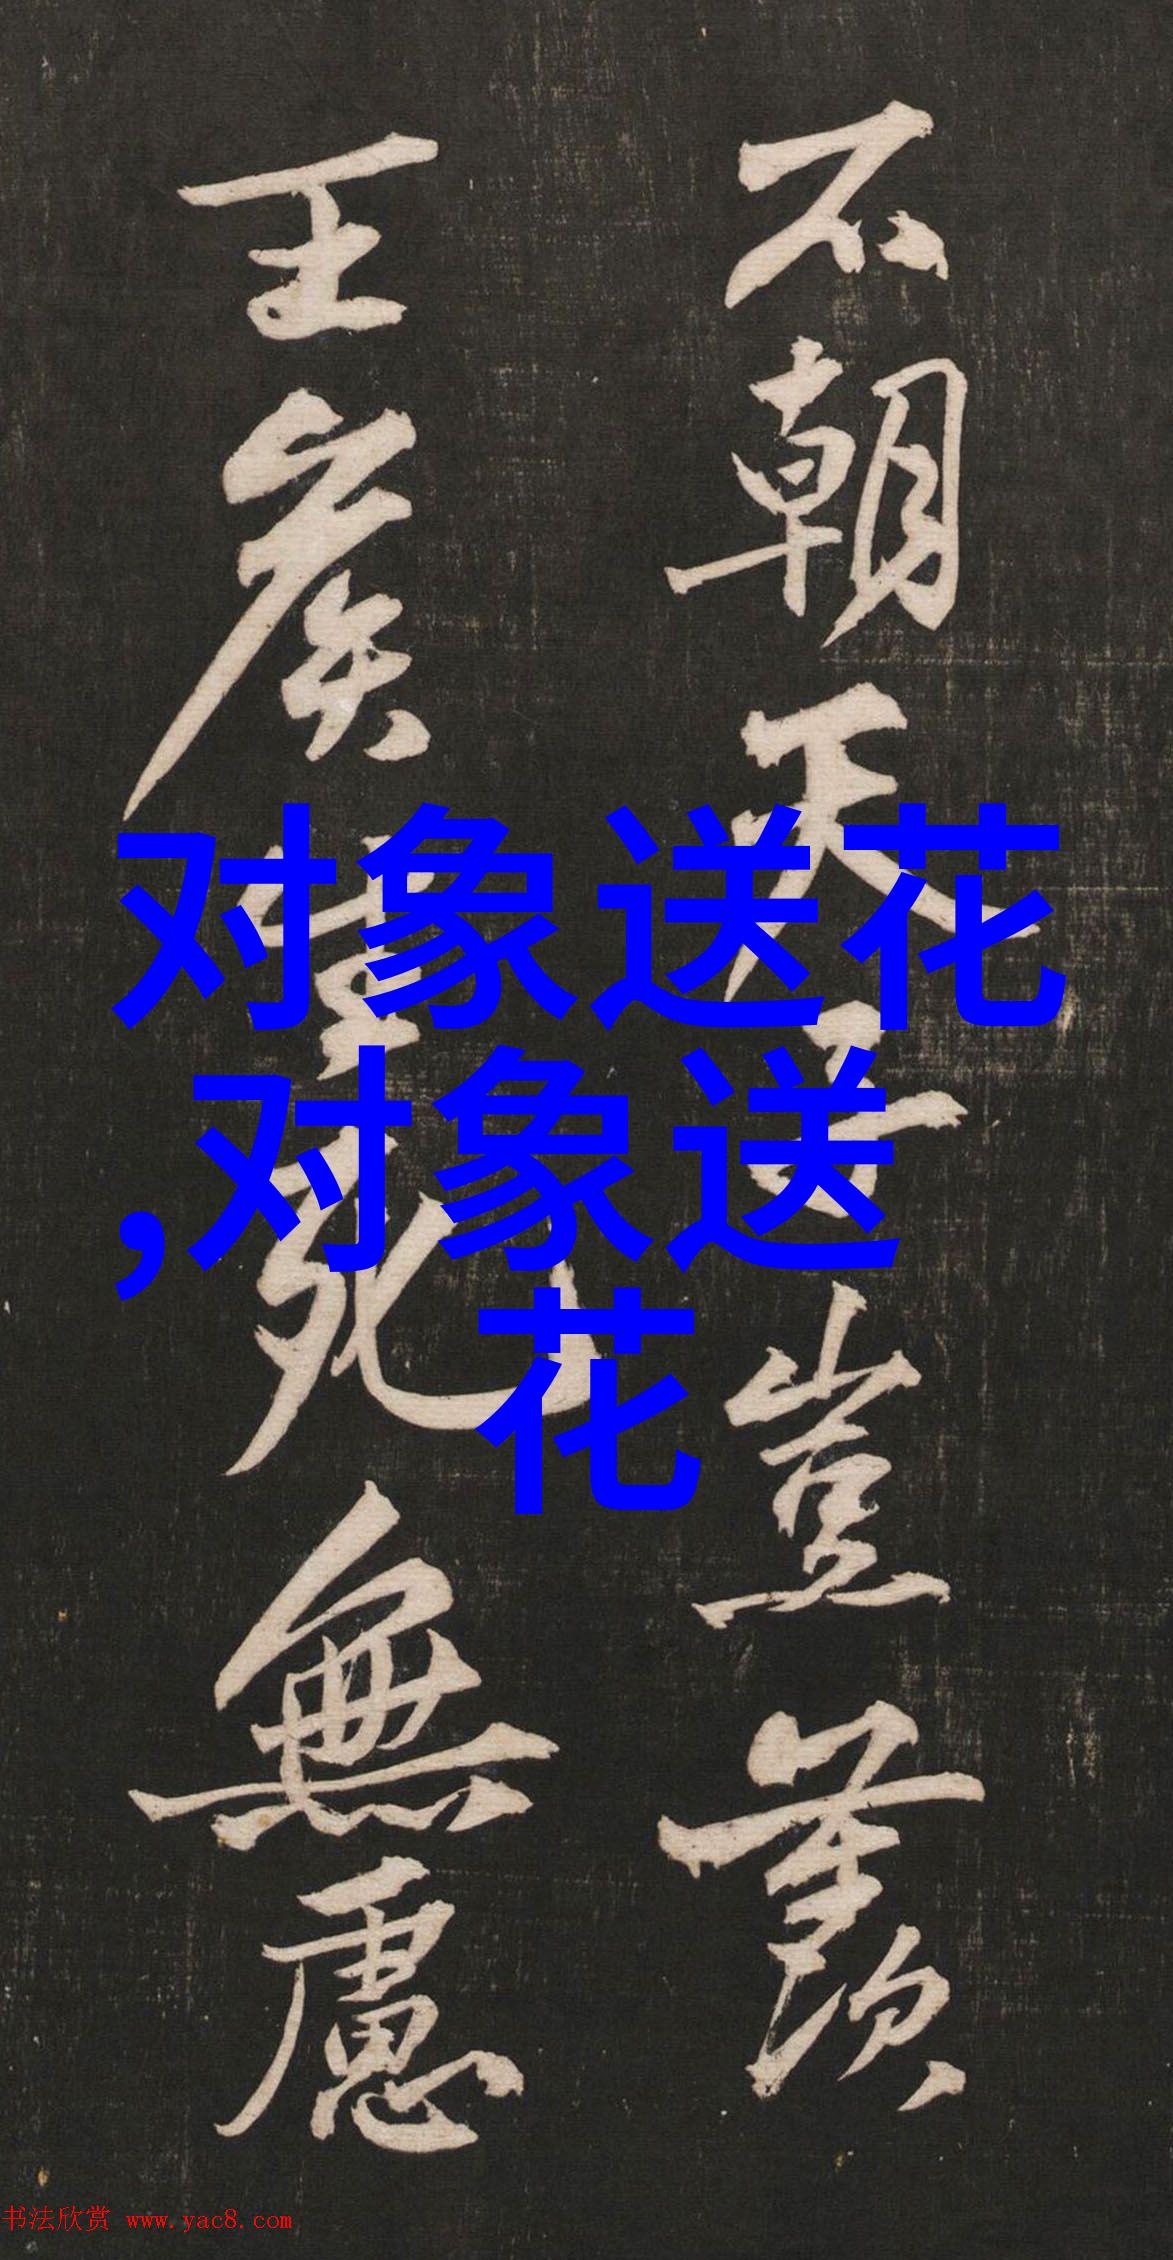 不朝天子豈羨
王侯生死無慮
对象送花
,对象送
花
书法欣赏 www.yac8.com